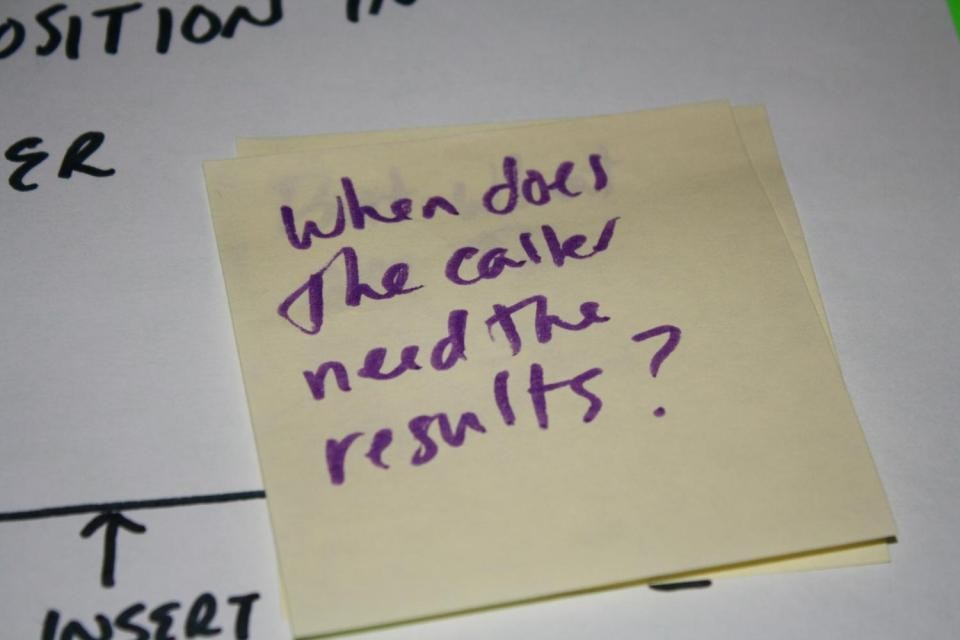 OSITION IN
ER
When does
the caller
need the
results?
INSERT